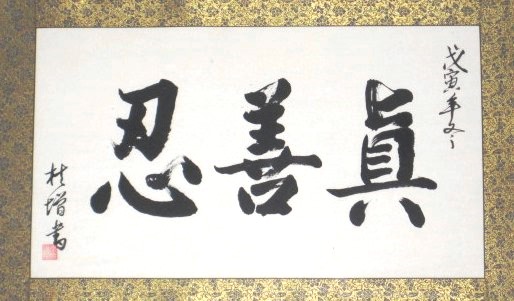 戊寅年冬
眞善忍
增書